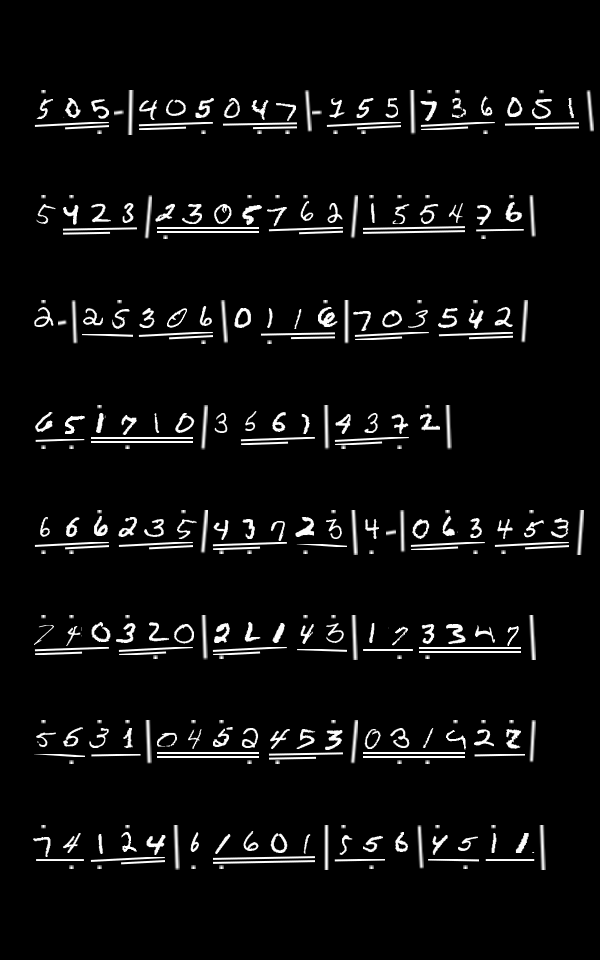 505-|405047-155|736051|
5423|2305762|155476|
2-|25306|0116|703542|
651710|3561|4372|
666235|43723|4-|063453|
740320|21143|173347|
5631|0452453|031922|
74124|61601|556|4511|